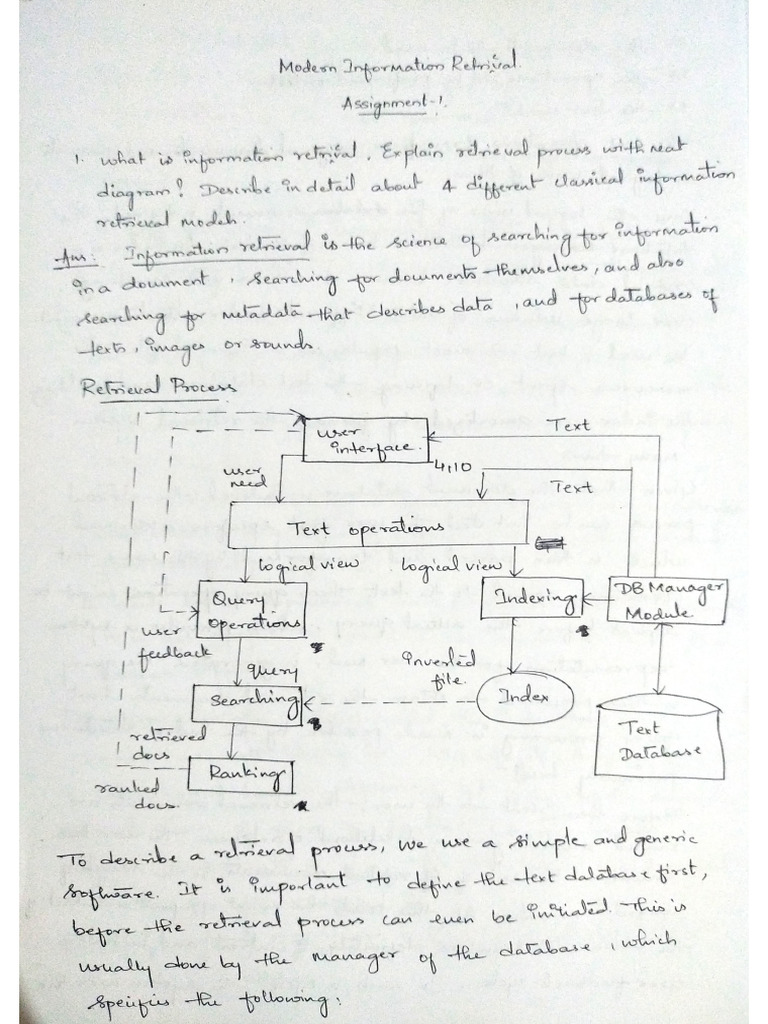 Modern Information Retrival.
Assignment-1.
1. What is information retrival. Explain retrieval process with neat
diagram? Describe in detail about 4 different classical information
retrieval models.
Ans: Information retrieval is the science of searching for information
in a document, searching for documents themselves, and also
searching for metadata that describes data, and for databases of
texts, images or sounds.
Retrieval Process
User
interface.
Text
4,10
user
need
Text
Text operations
Logical view
Logical view
Query
operations
Indexing
DB Manager
Module
user
feedback
query
inverted
file.
Searching
Index
Text
Database
retrieved
docs
Ranking
ranked
docs.
To describe a retrieval process, we use a simple and generic
software. It is important to define the text database first,
before the retrieval process can even be initiated. This is
usually done by the manager of the database, which
specifies the following: